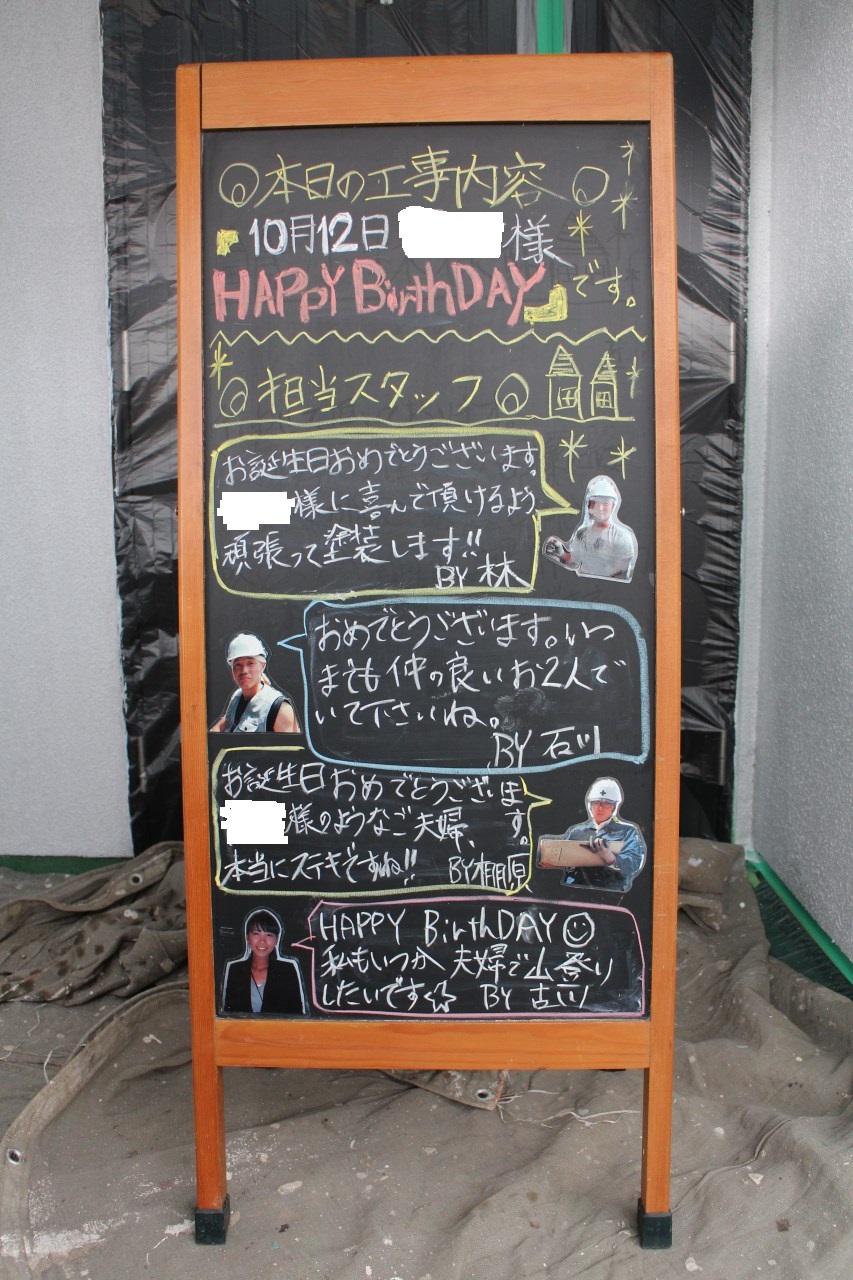 本日の工事内容
10月12日 様
HAPPY BirthDAY です。
担当スタッフ
お誕生日おめでとうございます。
様に喜んで頂けるよう
頑張って塗装します!!
BY 林
おめでとうございます。いつ
までも仲の良いお2人で
いて下さいね。
BY 石川
お誕生日おめでとうございます。
様のようなご夫婦、
本当にステキですね!! BY 棚原
HAPPY BirthDAY
私もいつか夫婦で山登り
したいです☆ BY 古川